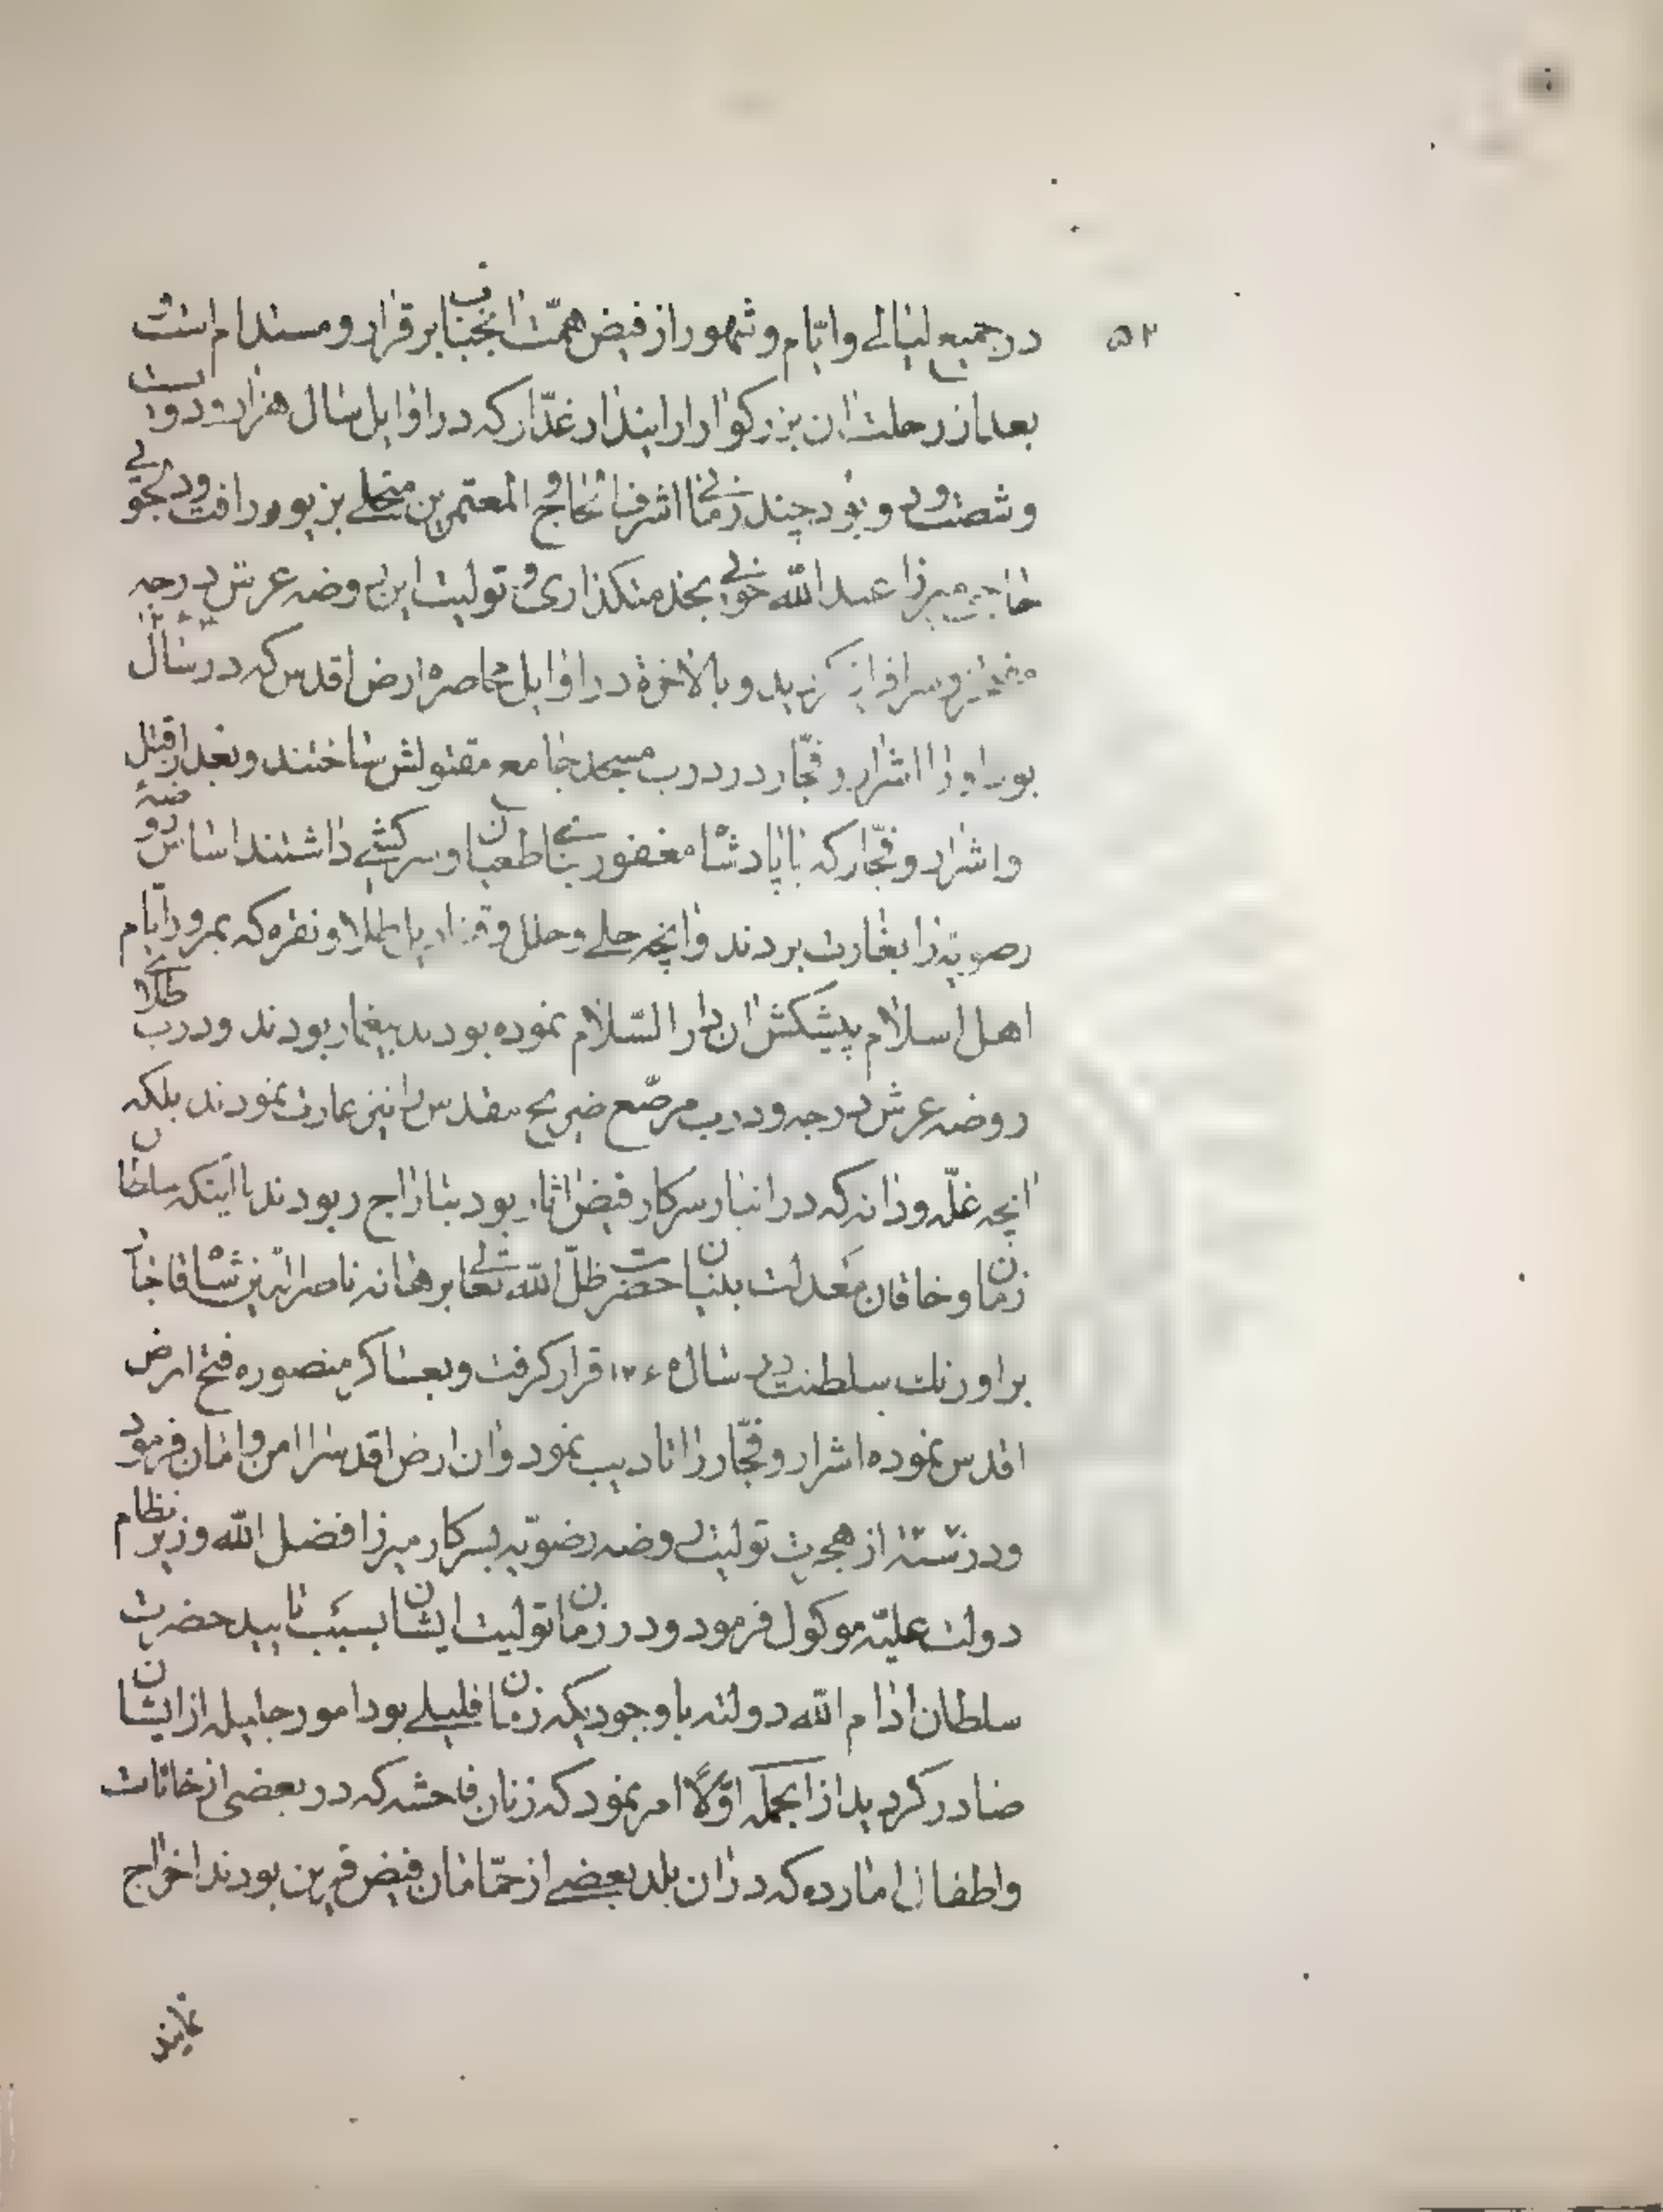 ۵۲
در جمیع لیالی و ایّام و شهور از فیض همّت انجناب بر قرار و مستدام است و
بعد از رحلت ان بزرکوار از ایندار غدّار که در اوایل سال هزار و دویست
و شصت و دو بود چند زمانی اشرف الحاج و المعتمرین متحلی بزیور رافت و دلجوئی
حاجی میرزا عبد الله خوئی بخدمتکذاری و تولیت این روضه عرش درجه
مفتخر و سرافراز کردید و بالاخره در اوایل محاصره ارض اقدس که در سال
بود او را اشرار و فجّار در درب مسجد جامع مقتولش ساختند و بعد از قتل
و اشرار و فجّار که با پادشاه مغفور بنای طغیان و سرکشی داشتند اساس روضه
رضویّه را بغارت بردند و انچه حلی و حلل و قنادیل طلا و نقره که بمرور ایّام
اهل اسلام پیشکش ان دار السّلام نموده بودند بیغما ربودند و درب طلای
روضه عرش درجه و درب مرصّع ضریح مقدس را نیز غارت نمودند بلکه
انچه غلّه و دانه که در انبار سرکار فیض اثار بود بتاراج ربودند تا اینکه سلطان
زمان و خاقان معدلت بنیان حضرت ظلّ الله تعالی برهانه ناصر الدّین شاه قاجار
بر اورنك سلطنت در سال ۱۲۶۵ قرار کرفت و بعساکر منصوره فتح ارض
اقدس نموده اشرار و فجّار را تادیب نمود و ان ارض اقدس را امن و امان فرمود
و در سنه از هجرت تولیت روضه رضویّه بسرکار میرزا فضل الله وزیر نظام
دولت علیّه موکول فرمود و در زمان تولیت ایشان بسبب تایید حضرت
سلطان ادام الله دولته با وجودیکه زمان قلیلی بود امور جلیله از ایشان
صادر کردید از انجمله اوّلاً امر نمود که زنان فاحشه که در بعضی از خانات
و اطفال امارده که در ان بلد بعضی از حمّامان فیض قرین بودند اخراج
نمایند